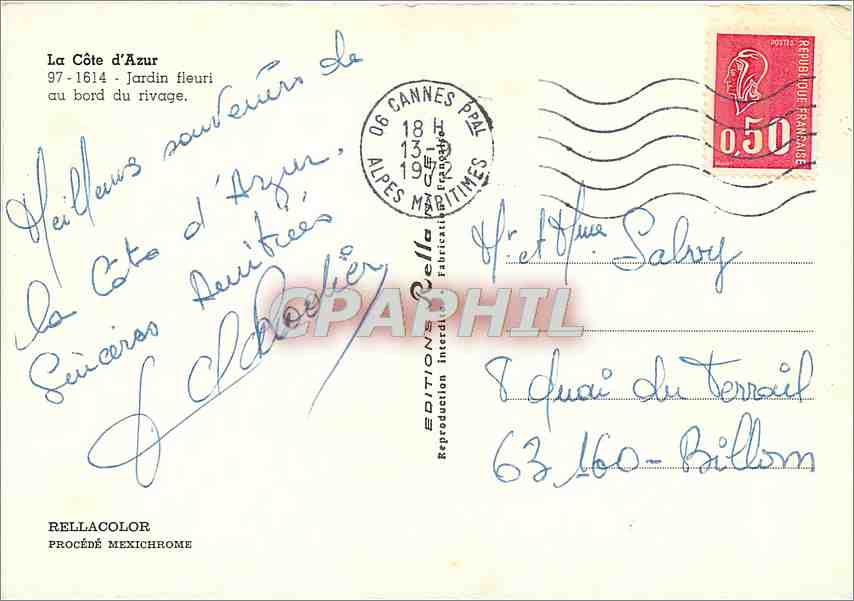 La Côte d'Azur
97-1614 - Jardin fleuri
au bord du rivage.
Meilleurs souvenirs de
la Côte d'Azur.
Sincères Amitiés
RELLACOLOR
PROCÉDÉ MEXICHROME
EDITIONS Rella
Reproduction interdite - Fabrication Française
06 CANNES PPAL
18 H
13-9
1972
ALPES MARITIMES
POSTES
REPUBLIQUE FRANÇAISE
0,50
Mr et Mme Salvy
8 Quai du Terrail
63160 - Billom
CPAPHIL